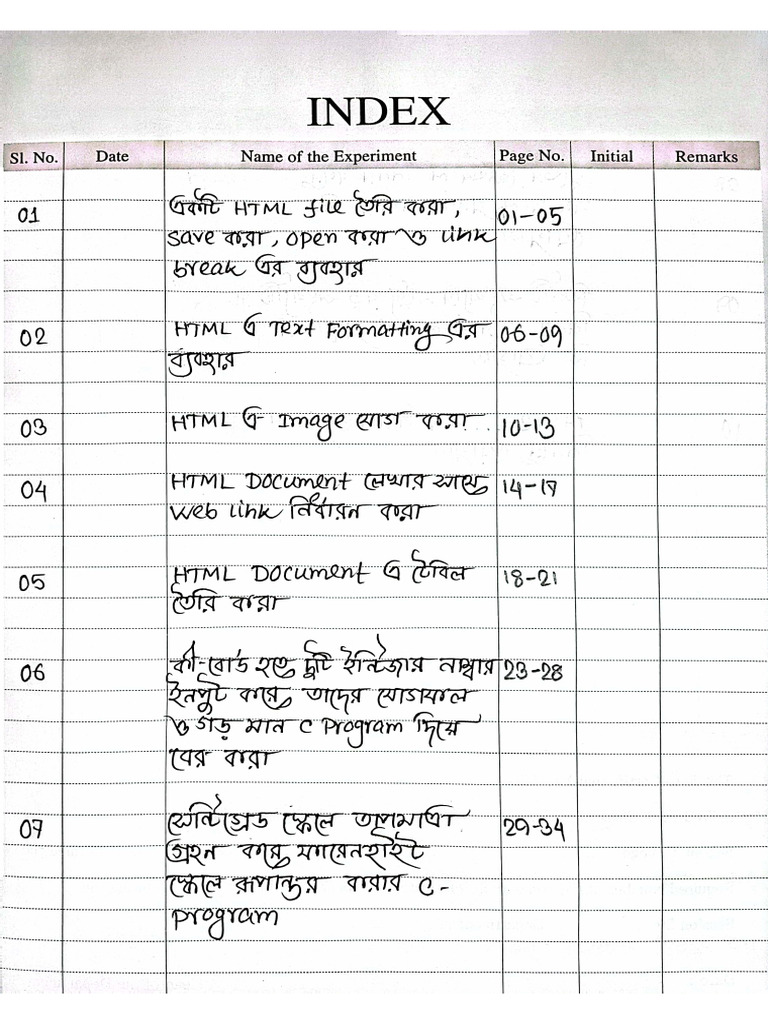 INDEX
Sl. No. Date Name of the Experiment Page No. Initial Remarks
01 একটি HTML file তৈরি করা, 01-05
save করা, open করা ও link
break এর ব্যবহার
02 HTML এ Text Formatting এর 06-09
ব্যবহার
03 HTML এ Image যোগ করা 10-13
04 HTML Document লেখার সাথে 14-17
Web link নির্ধারন করা
05 HTML Document এ টেবিল 18-21
তৈরি করা
06 কী-বোর্ড হতে দুটি ইন্টিজার নাম্বার 23-28
ইনপুট করে তাদের যোগফল
ও গড় মান C Program দিয়ে
বের করা
07 সেন্টিগ্রেড স্কেলে তাপমাত্রা 29-34
গ্রহন করে ফারেনহাইট
স্কেলে রূপান্তর করার C-
program